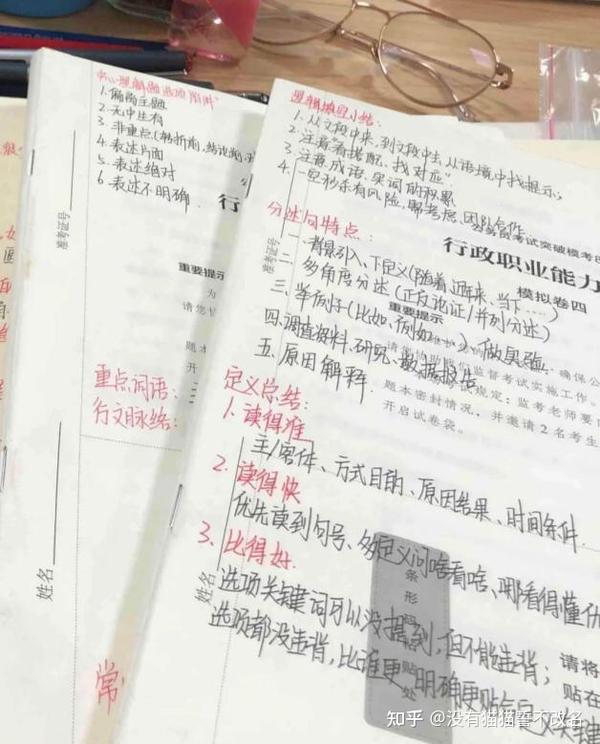 中心理解题选项"陷阱"
1. 偏离主题
2. 无中生有
3. 非重点(转折前,
4. 表述片面
5. 表述绝对
6. 表述不明确
准考证号
行
重要提示
为
请您
题本
开
重点词语:
行文脉络:
姓名
常
逻辑填空小结:
1. 从文段中来,到文段中去,从语境中找提示
2. 注意看搭配、找对应
3. 注意成语、实词的积累
4. 一旦秒杀有风险,
公务员考试突破模考
行政职业能力
模拟卷四
重要提示
分述句特点:
一、背景引入、下定义(随着、近年来、当下……)
二、多角度分述(正反论证/并列分述)
三、举例子(比如、例如……)、做实验
四、调查资料、研究、数据报告
五、原因解释
准考证号
确保公
监督考试实施工作。
规定:监考老师要
题本密封情况,并邀请2名考生
开启试卷袋。
定义总结:
1. 读得准
主/客体、方式目的、原因结果、时间条件
2. 读得快
优先读到句号、多定义问啥看啥、哪看得懂优
3. 比得好
选项关键词可以没提到,但不能违背;
选项都没违背,比谁更明确更贴合定义关键
姓名
条形码粘贴处
请将
贴在
知乎 @没有猫猫誓不改名